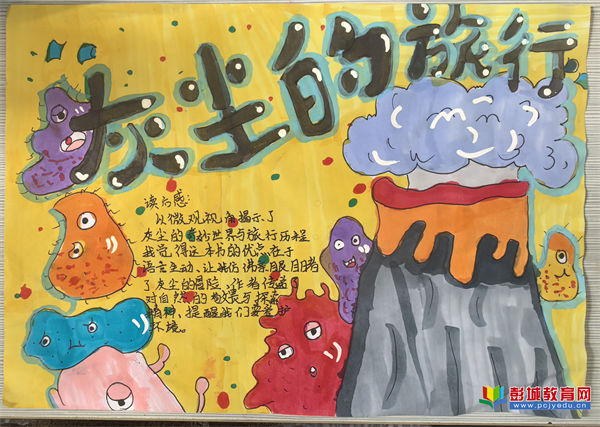 灰尘的旅行
读后感:
以微观视角揭示了
灰尘的奇妙世界与旅行历程
我觉得这本书的优点在于
语言生动,让我仿佛亲眼目睹
了灰尘的冒险,作者传递了
对自然的敬畏与探索
精神,提醒我们要爱护
环境。
彭城教育网
www.pcjyedu.cn